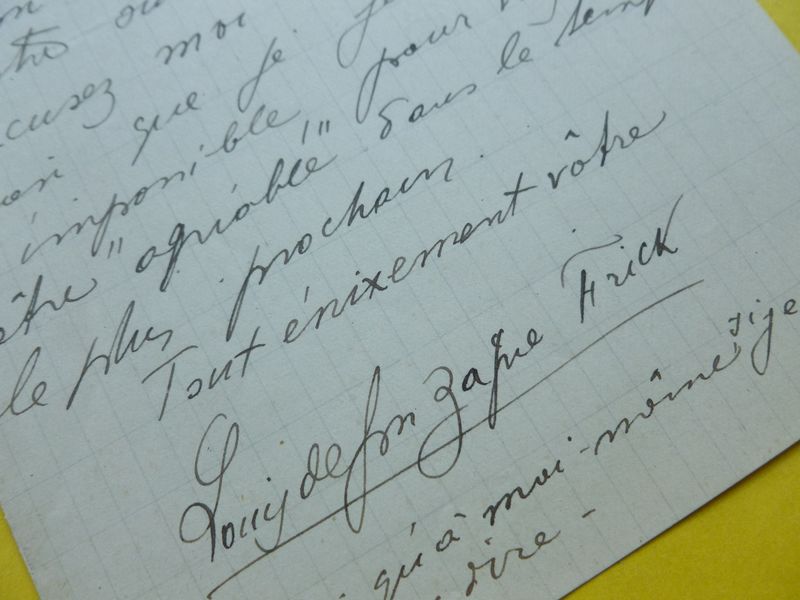 excusez moi
que je
imposible, pour
être "agréable" dans le temps
le plus prochain.
Tout énixement vôtre
Louis de Gonzague Frick
qu'à moi-même, si je
dire -